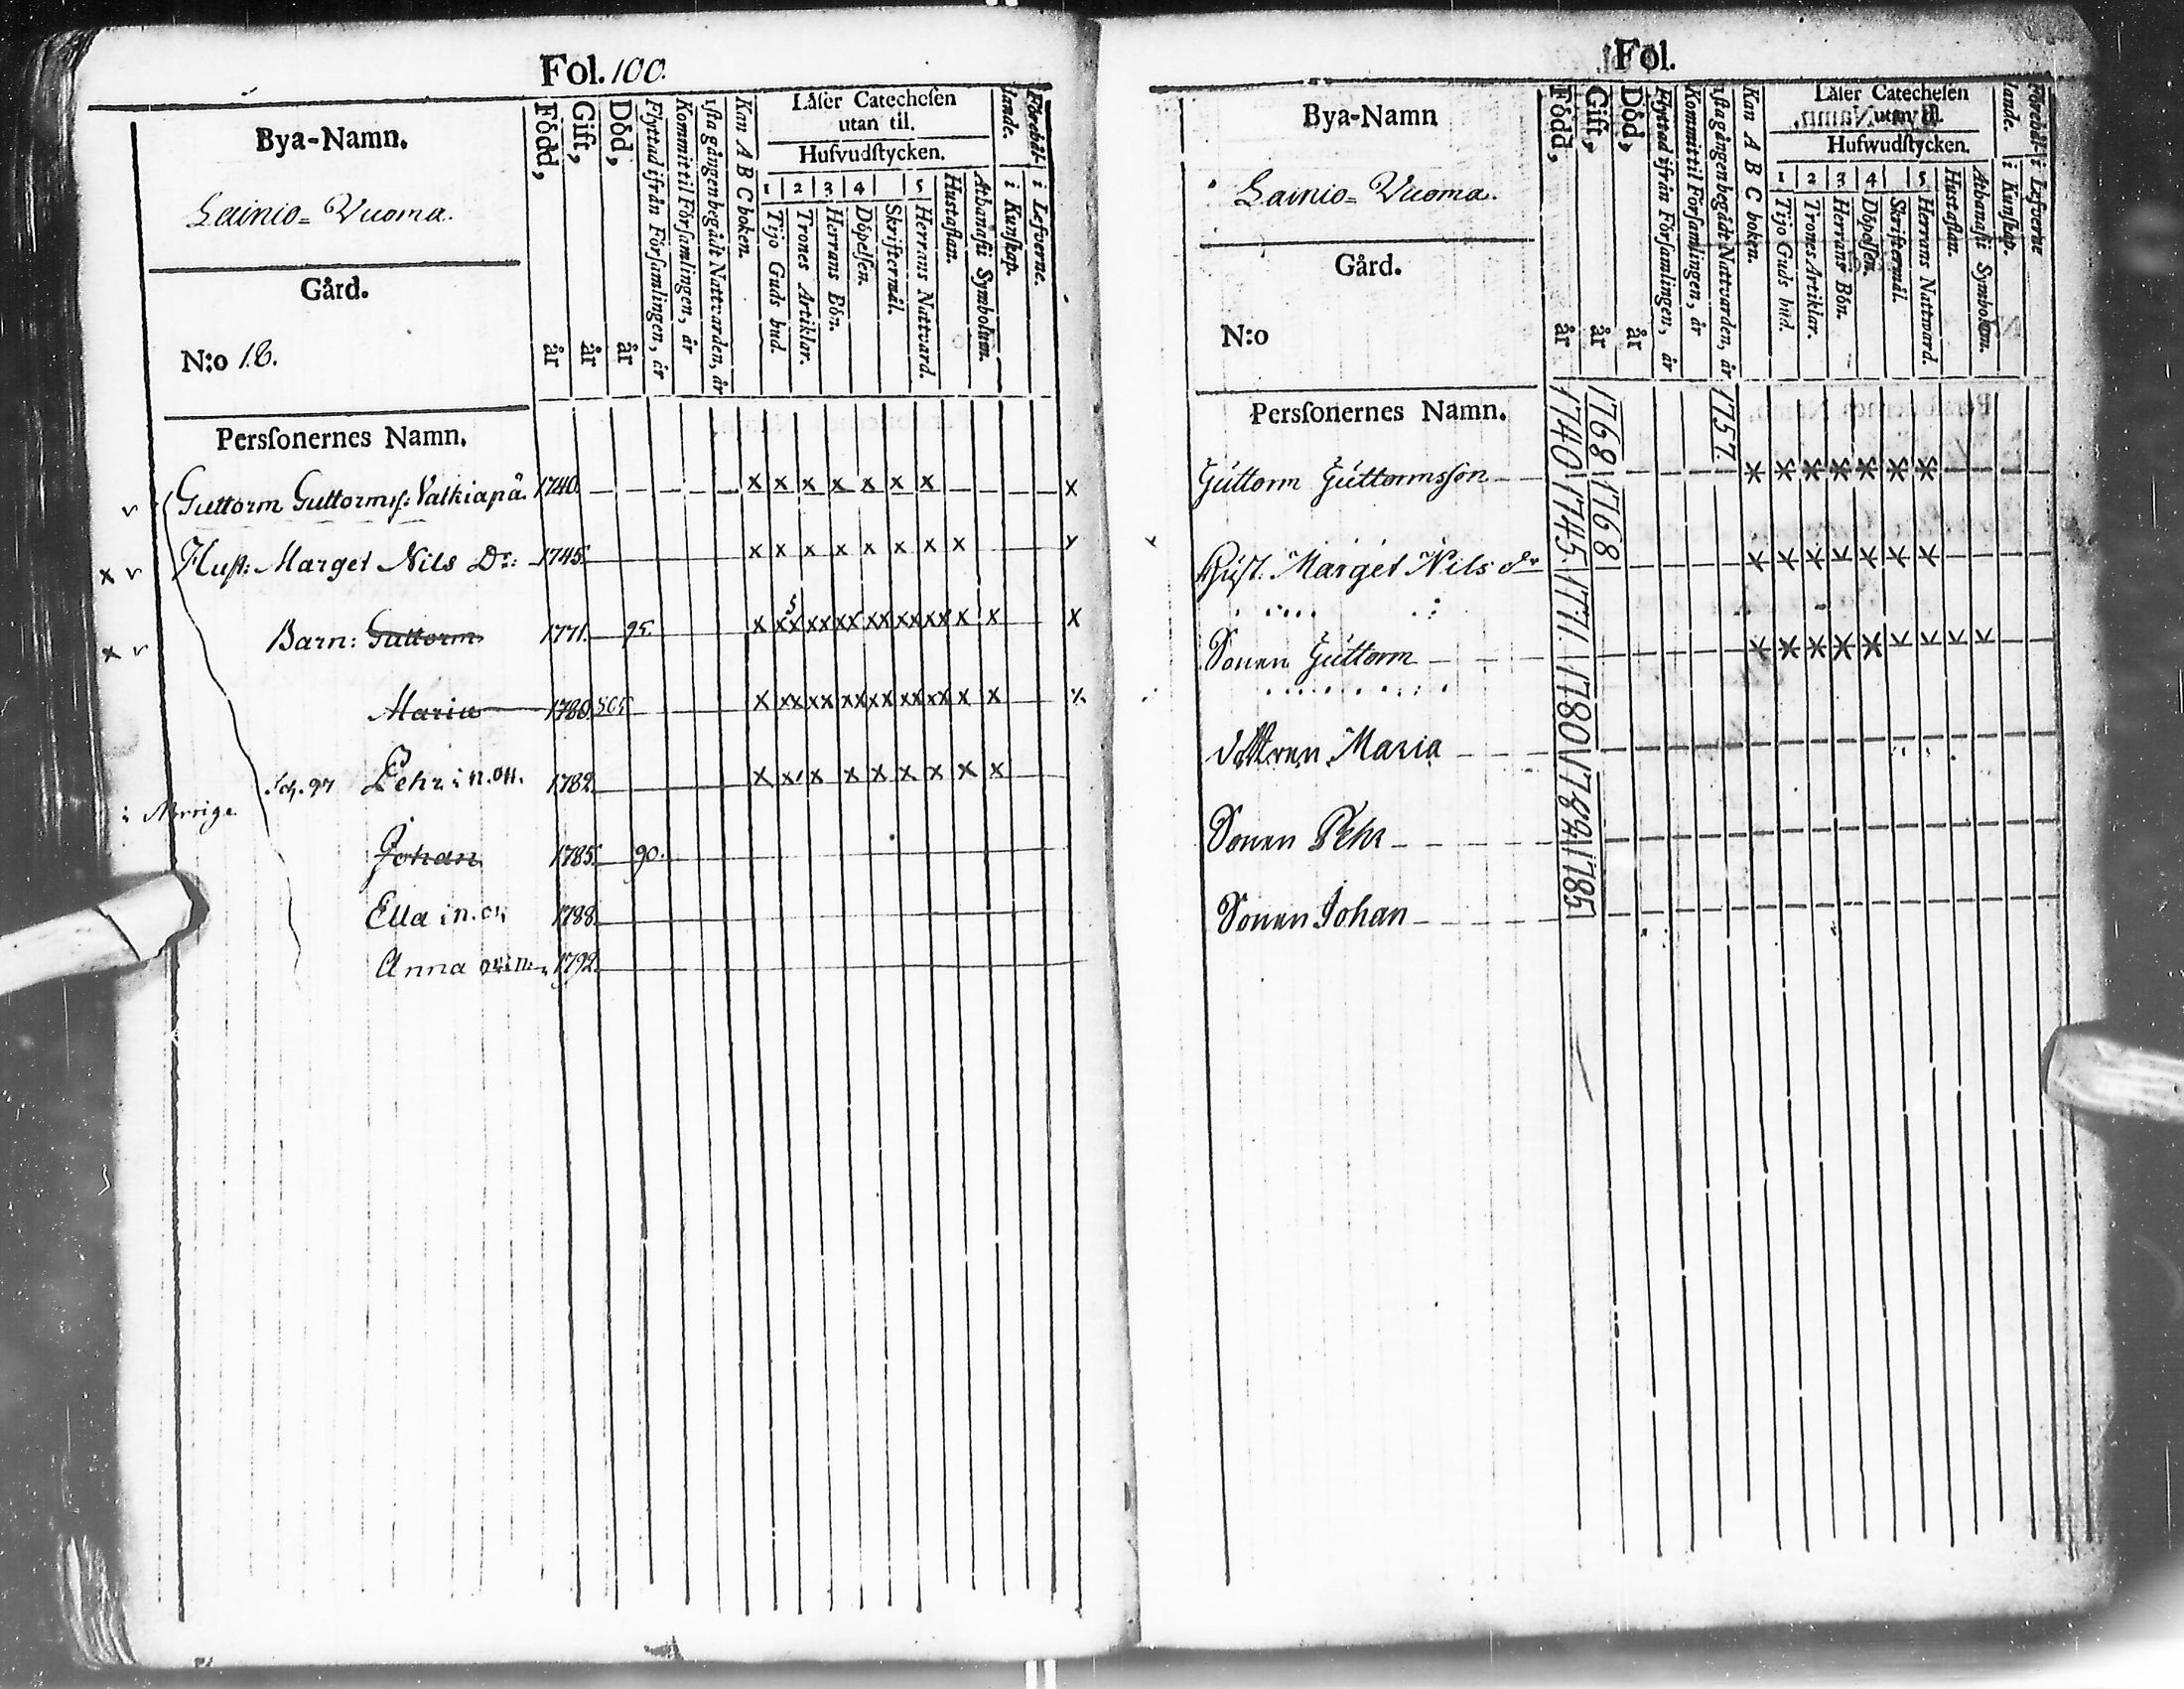 Fol. 100.
Bya-Namn.
Lainio= Vuoma.
Gård.
N:o 18.
Persſonernes Namn.
Född, år
Gift, år
Död, år
Flyttad ifrån Förſamlingen, år
Kommit til Förſamlingen, år
ſiſta gången begådt Nattvarden, år
Kan A B C boken.
Läſer Catecheſen
utan til.
Hufvudſtycken.
1 2 3 4 5
Tijo Guds bud.
Trones Artiklar.
Herrans Bön.
Döpelſen.
Skriftermål.
Herrans Nattvard.
Huſtaflan.
Athanaſii Symbolum.
Förehållande.
i Kunſkap.
i Lefverne.
Guttorm Guttormsſ: Valkiapä. 1740. x x x x x x x x
Huſt: Marget Nils Dr: 1745. x x x x x x x x
Barn: Guttorm 1771. 95.
Maria 1780.
97 Pehr i n.on. 1782.
i Norrige
Johan 1785. 90.
Ella i n.on 1788.
Anna 1792.
Fol.
Bya-Namn
Lainio= Vuoma.
Gård.
N:o
Persſonernes Namn.
Född, år
Gift, år
Död, år
Flyttad ifrån Förſamlingen, år
Kommit til Förſamlingen, år
ſiſta gången begådt Nattvarden, år
Kan A B C boken.
Läſer Catecheſen
utan til.
Hufwudſtycken.
1 2 3 4 5
Tijo Guds bud.
Trones Artiklar.
Herrans Bön.
Döpelſen.
Skriftermål.
Herrans Natward.
Huſtaflan.
Athanaſii Symbolum.
Förehållande.
i Kunſkap.
i Lefverne
Guttorm Guttormsſon 1740 1768 1757.
Huſt. Marget Nils dr 1745. 1768
Sonen Guttorm 1771.
dottren Maria 1780
Sonen Pehr 1782
Sonen Johan 1785